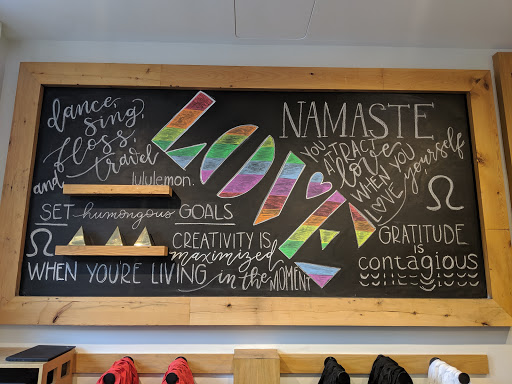 dance,
sing,
floss,
and travel
lululemon.
SET humongous GOALS
WHEN YOU'RE LIVING
CREATIVITY IS
maximized
in the MOMENT
LOVE
NAMASTE
YOU ATTRACT
love
WHEN YOU
LOVE yourself
GRATITUDE
IS
contagious